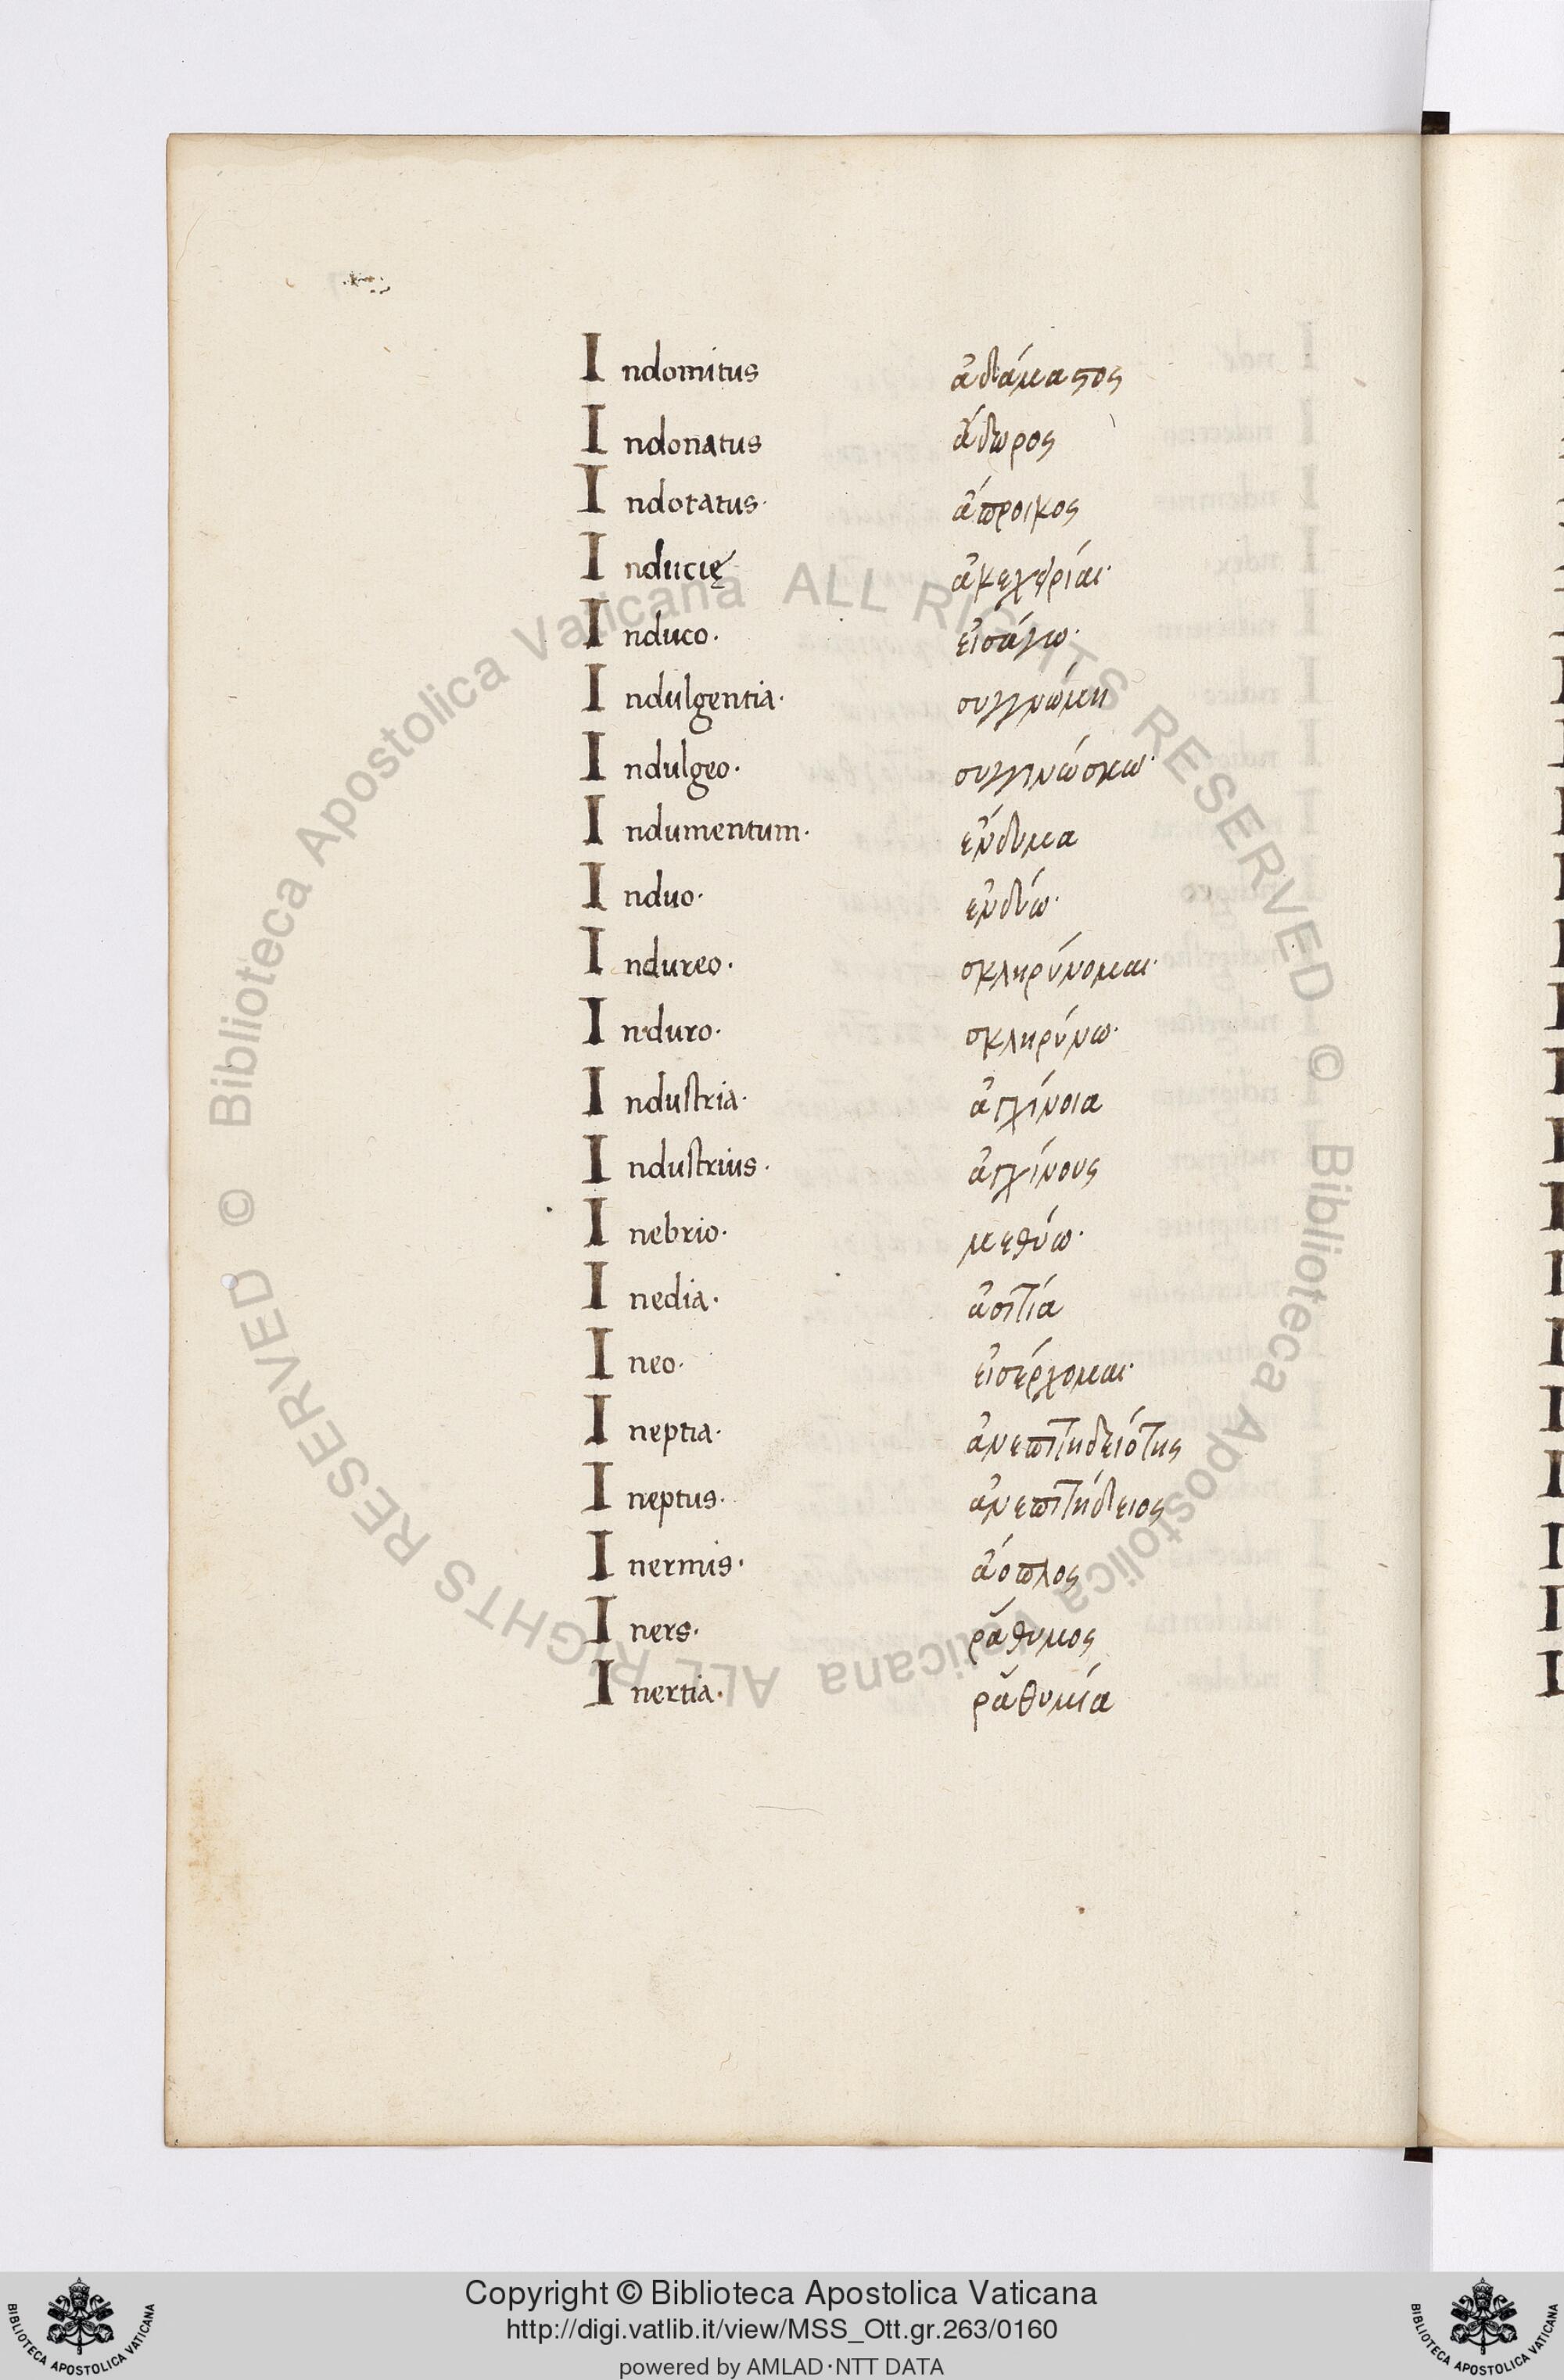 Indomitus ἀδάμαστος
Indonatus ἄδωρος
Indotatus· ἄπροικος
Inducię ἀκεχεφρίαι·
Induco· εἰσάγω·
Indulgentia· συγγνώμη
Indulgeo· συγγινώσκω·
Indumentum· ἔνδυμα
Induo· ἐνδύω·
Indureo· σκληρύνομαι·
Induro· σκληρύνω·
Industria· ἀγχίνοια
Industrius· ἀγχίνους
Inebrio· μεθύω·
Inedia· ἀσιτία
Ineo· εἰσέρχομαι·
Ineptia· ἀνεπιτηδειότης
Ineptus· ἀνεπιτήδειος
Inermis· ἄοπλος
Iners· ῥάθυμος
Inertia· ῥαθυμία
© Biblioteca Apostolica Vaticana ALL RIGHTS RESERVED
© Biblioteca Apostolica Vaticana ALL RIGHTS RESERVED
Copyright © Biblioteca Apostolica Vaticana
http://digi.vatlib.it/view/MSS_Ott.gr.263/0160
powered by AMLAD·NTT DATA
BIBLIOTECA APOSTOLICA VATICANA
BIBLIOTECA APOSTOLICA VATICANA